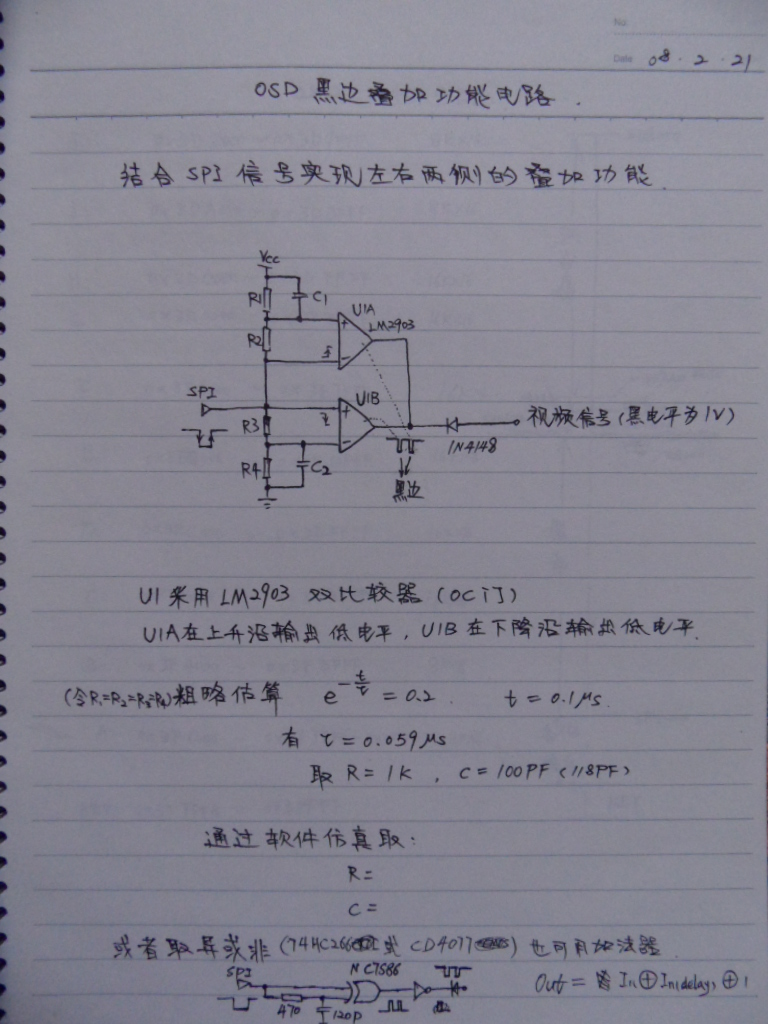 No:
Date 08.2.21
OSD 黑边叠加功能电路.
结合 SPI 信号实现左右两侧的叠加功能.
Vcc
R1
C1
U1A
LM2903
R2
SPI
U1B
R3
视频信号(黑电平为1V)
1N4148
R4
C2
黑边
U1采用 LM2903 双比较器 (OC门)
U1A在上升沿输出低电平, U1B在下降沿输出低电平.
(令R1=R2=R3=R4) 粗略估算 e^-t/τ = 0.2. t = 0.1μs.
有 τ = 0.059μs
取 R = 1K, C = 100PF (118PF)
通过软件仿真取:
R =
C =
或者取异或非 (74HC266 或 CD4077) 也可用加法器.
SPI
NC7S86
470
120P
Out = In⊕In(delay)⊕1